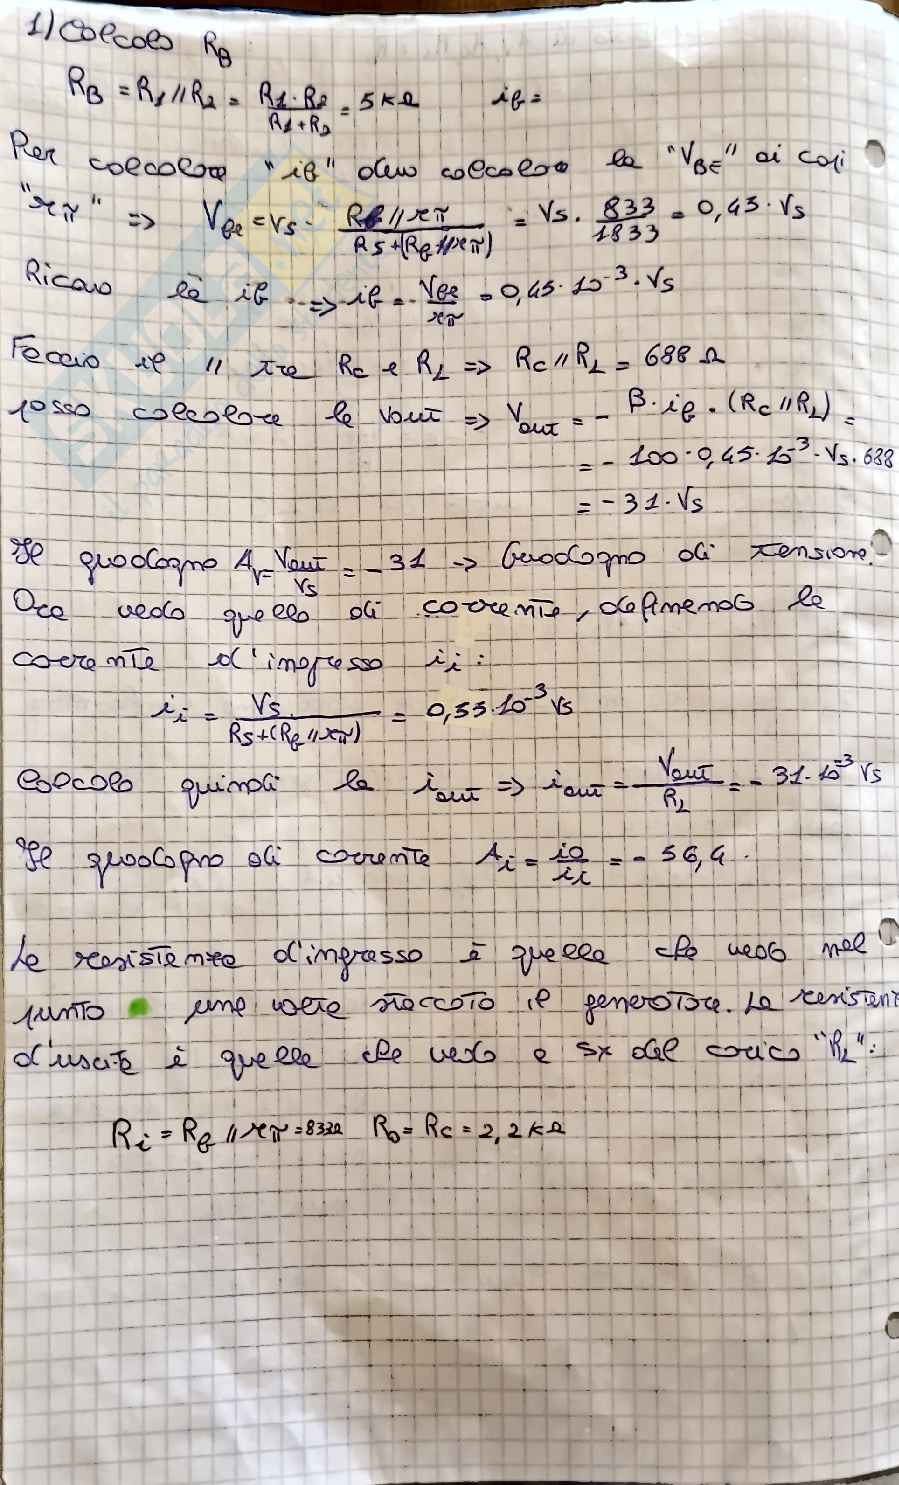 1) Calcolo RB
RB = R1 // R2 = R1 · R2 / R1 + R2 = 5 kΩ ib =
Per calcolare "ib" devo calcolare la "VBE" ai capi
"rπ" => Vbe = Vs · Rb // rπ / Rs + (Rb // rπ) = Vs · 833 / 1833 = 0,45 · Vs
Ricavo la ib => ib = Vbe / rπ = 0,45 · 10⁻³ · Vs
Faccio il // tra Rc e RL => Rc // RL = 688 Ω
posso calcolare la Vout => Vout = - β · ib · (Rc // RL) =
= - 100 · 0,45 · 10⁻³ · Vs · 688
= - 31 · Vs
Il guadagno Av = Vout / Vs = - 31 -> Guadagno di tensione.
Ora vedo quello di corrente, definendo la
corrente d'ingresso ii :
ii = Vs / Rs + (Rb // rπ) = 0,55 · 10⁻³ Vs
Calcolo quindi la iout => iout = Vout / RL = - 31 · 10⁻³ Vs
Il guadagno di corrente Ai = io / ii = - 56,4 .
La resistenza d'ingresso è quella che vedo nel
punto una volta staccato il generatore. La resistenz
d'uscita è quella che vedo a sx del carico "RL" :
Ri = Rb // rπ = 833Ω Ro = Rc = 2,2 kΩ